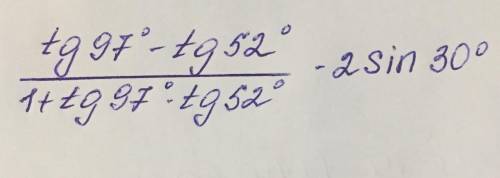 tg 97° - tg 52°
1 + tg 97° · tg 52° - 2 sin 30°